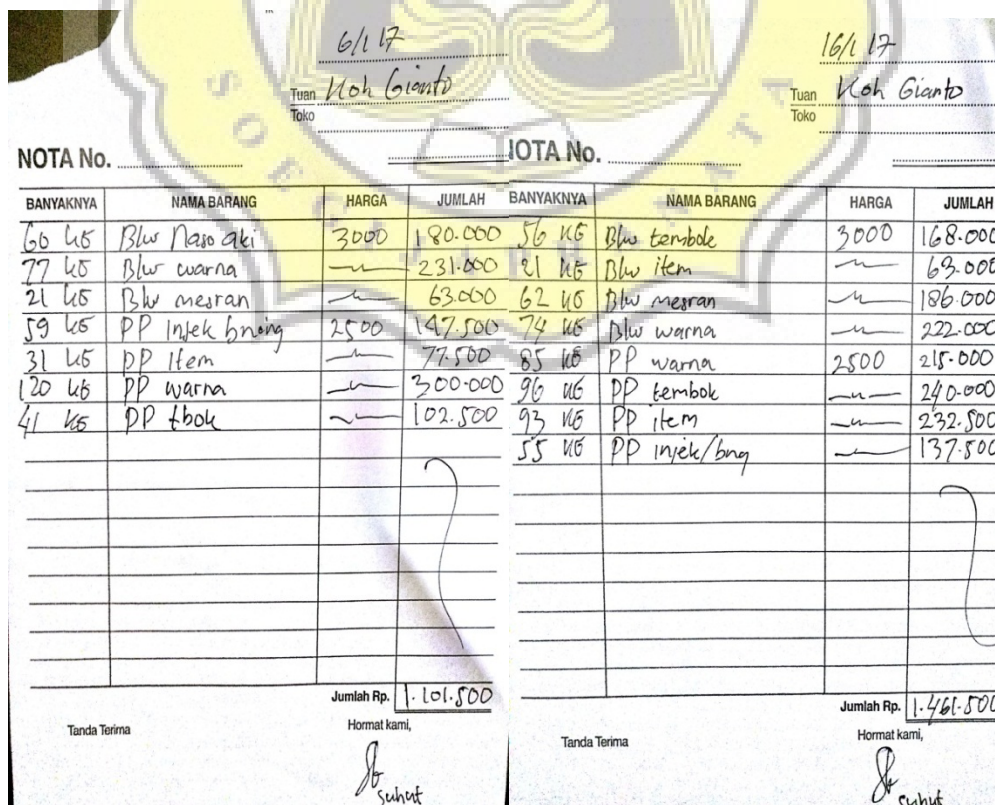 6/1 17
Tuan Koh Gianto
Toko
NOTA No.
BANYAKNYA NAMA BARANG HARGA JUMLAH
60 KG Blw Naso aki 3000 180.000
77 KG Blw warna 231.000
21 KG Blw mesran 63.000
59 KG PP Injek bning 2500 147.500
31 KG PP Item 77.500
120 KG PP warna 300.000
41 KG PP tbok 102.500
Jumlah Rp. 1.101.500
Tanda Terima Hormat kami,
Suhut
16/1 17
Tuan Koh Gianto
Toko
NOTA No.
BANYAKNYA NAMA BARANG HARGA JUMLAH
56 KG Blw tembok 3000 168.000
21 KG Blw item 63.000
62 KG Blw mesran 186.000
74 KG Blw warna 222.000
85 KG PP warna 2500 215.000
96 KG PP tembok 240.000
93 KG PP item 232.500
55 KG PP injek/bng 137.500
Jumlah Rp. 1.461.500
Tanda Terima Hormat kami,
Suhut